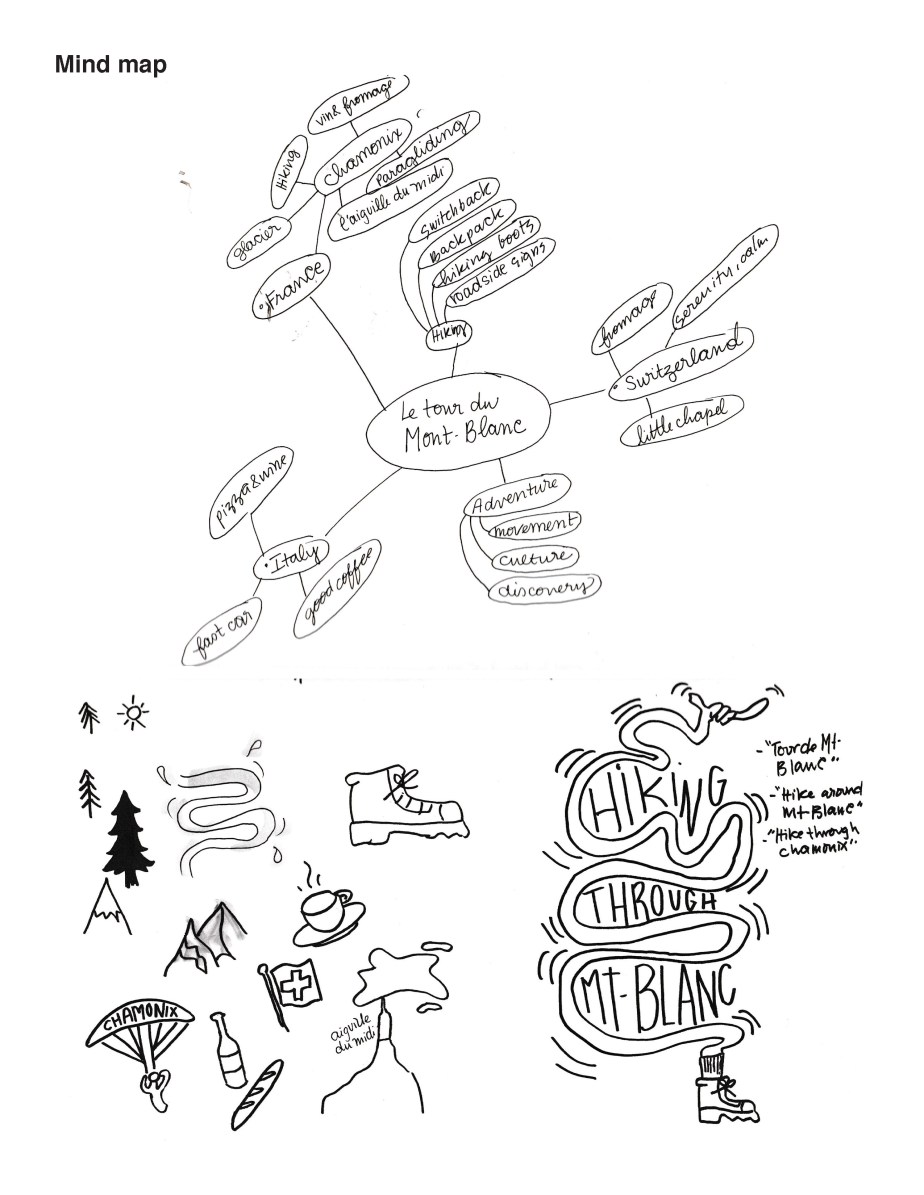 Mind map
vin & fromage
Chamonix
Hiking
Paragliding
l'aiguille du midi
glacier
France
switchback
Backpack
hiking boots
roadside signs
Hiking
fromage
serenity, calm
Switzerland
little chapel
Le tour du
Mont-Blanc
pizza & wine
Italy
fast car
good coffee
Adventure
movement
culture
discovery
HIKING
THROUGH
MT-BLANC
-"Tour de Mt-
Blanc"
-"Hike around
Mt Blanc"
-"Hike through
chamonix"
CHAMONIX
aiguille
du midi